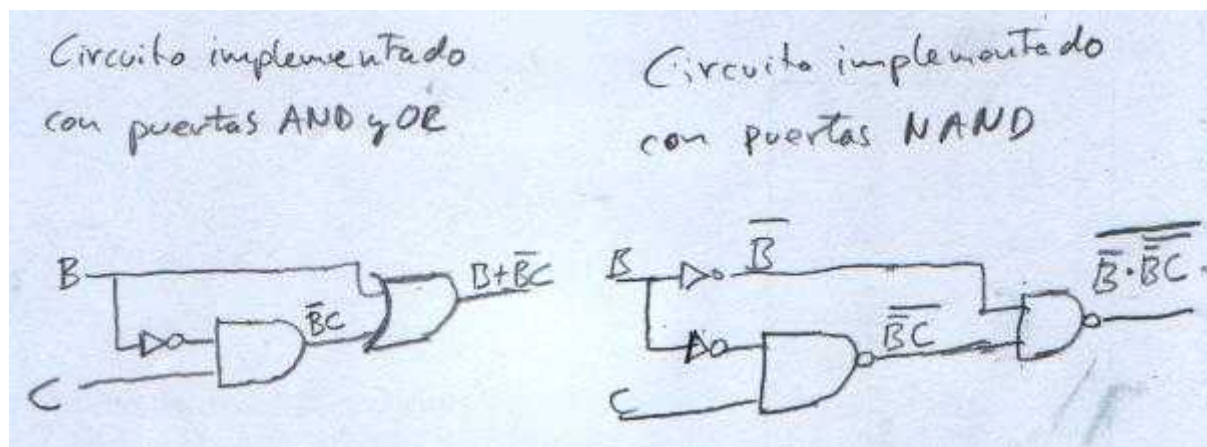 Circuito implementado
con puertas AND y OR
Circuito implementado
con puertas NAND
B
B+B̅C
B̅C
C
B
B̅
B̅·B̅C̅̅
B̅C̅̅
C